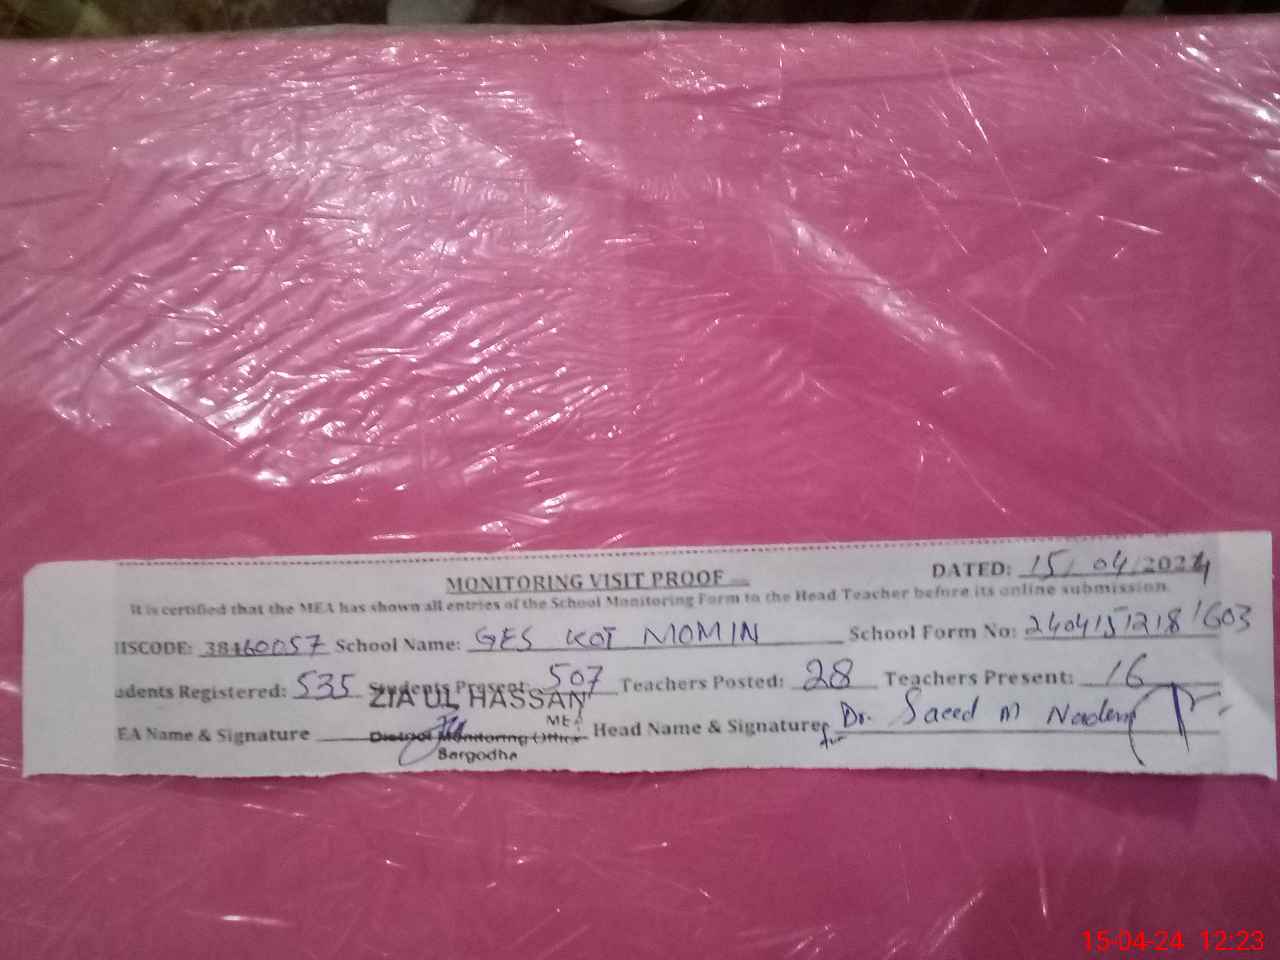 MONITORING VISIT PROOF
DATED: 15/ 04/2024
It is certified that the MEA has shown all entries of the School Monitoring Form to the Head Teacher before its online submission.
ISCODE: 38460057 School Name: GES KOT MOMIN School Form No:
udents Registered: 535 Students Present: 507 Teachers Posted: 28 Teachers Present: 16
ZIA UL HASSAN
MEA
EA Name & Signature District Monitoring Office Head Name & Signature for Dr. Saeed M Nadeem
Sargodha
15-04-24 12:23